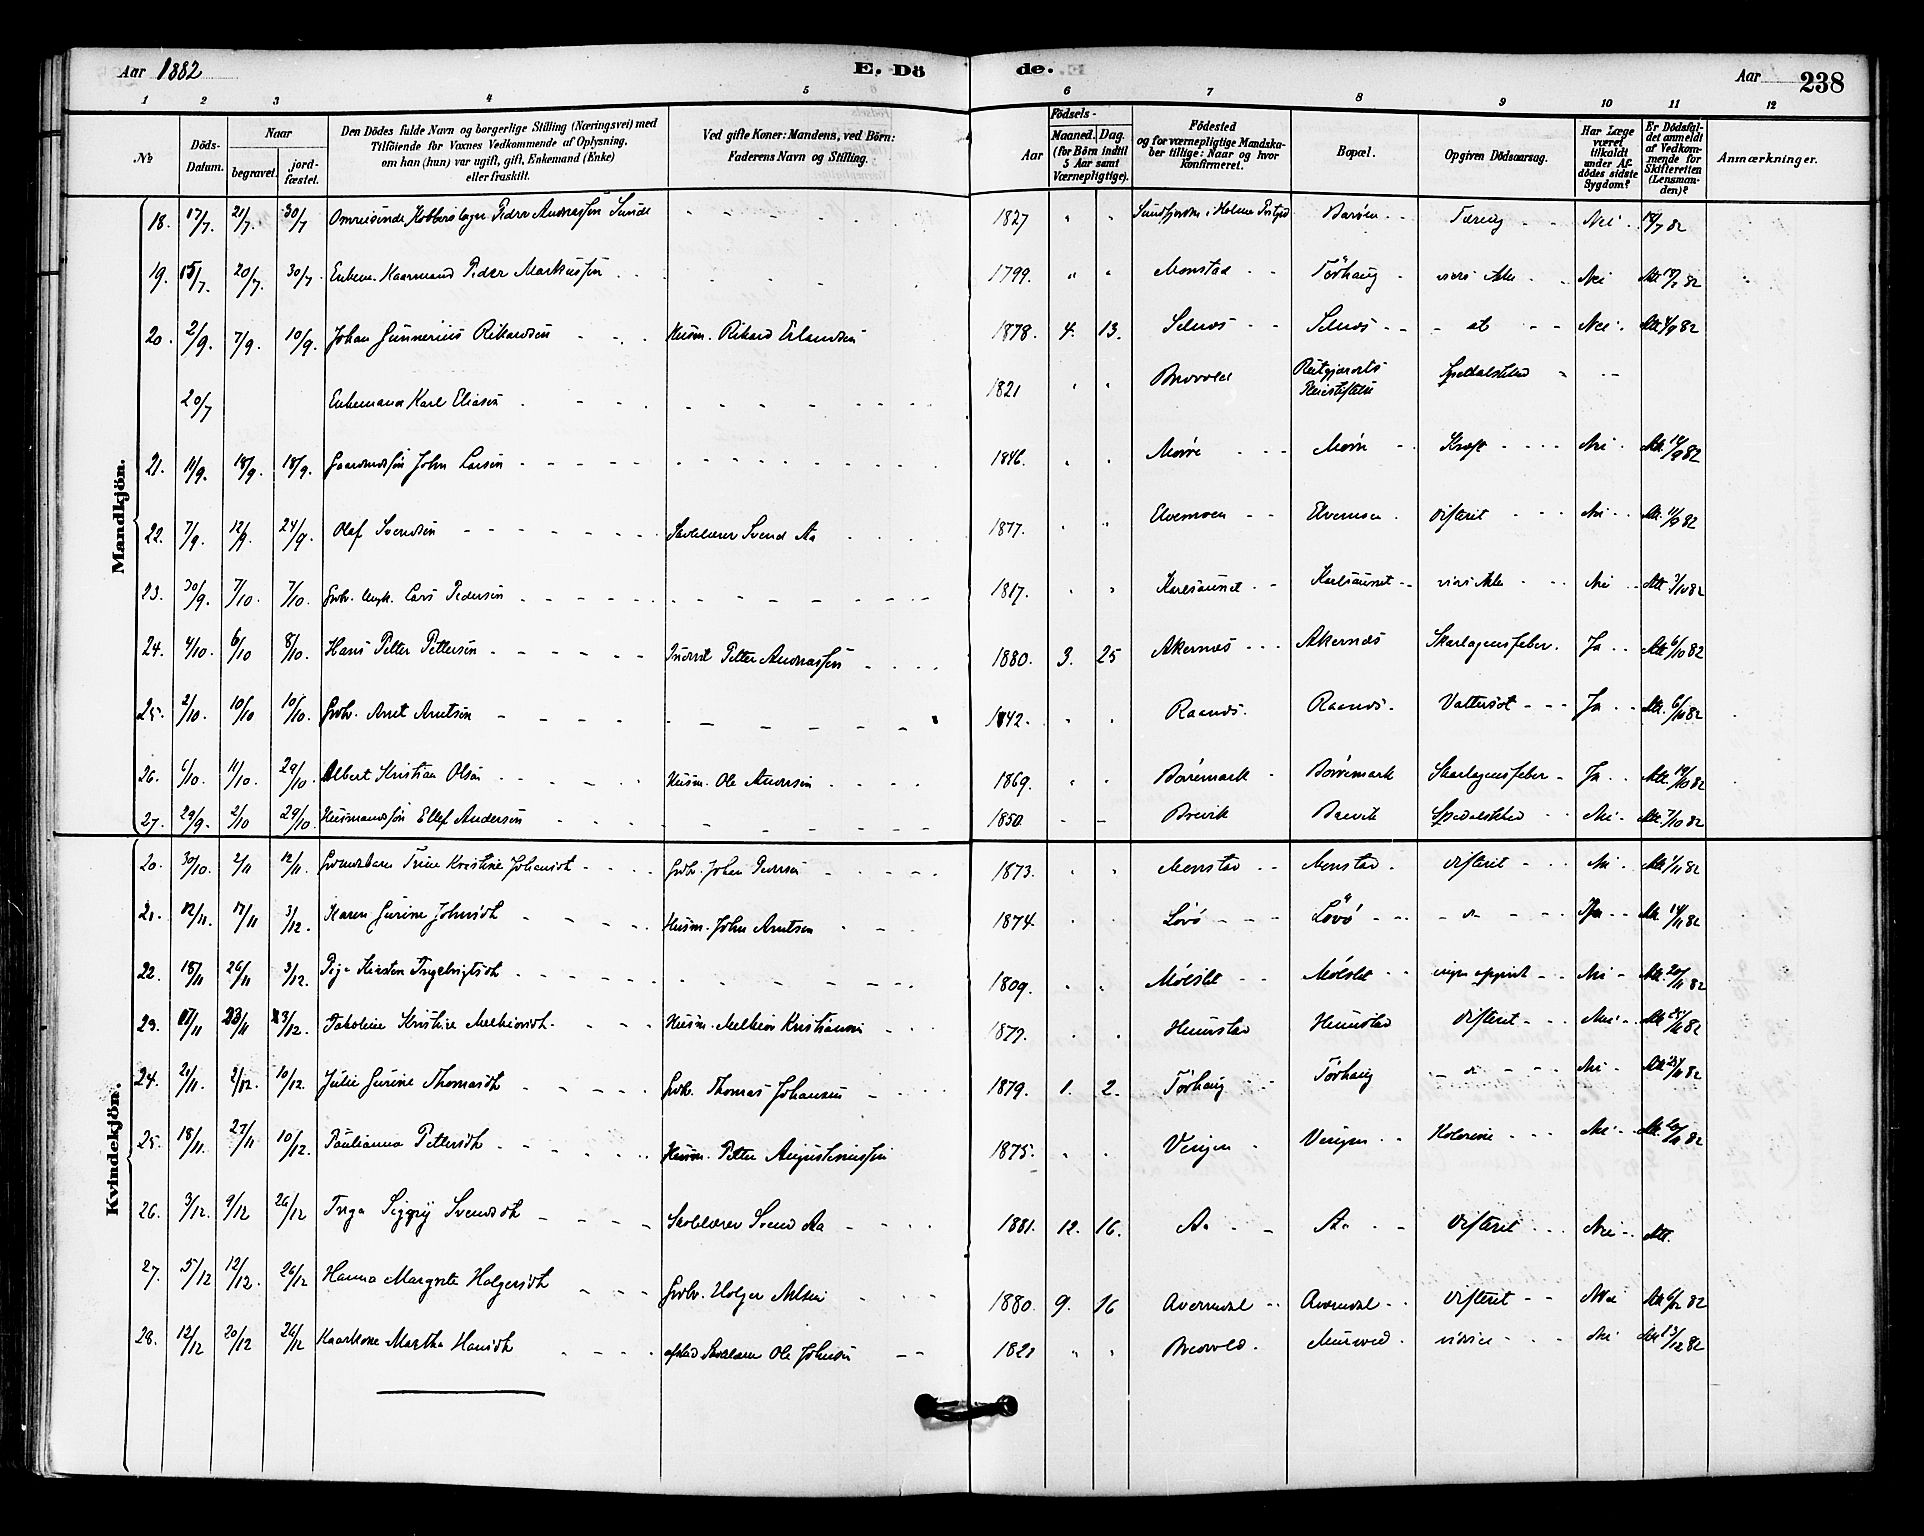 Aar 1882 E. Dö de. Aar 238
1 2 3 4 5 6 7 8 9 10 11 12
No Döds-Datum. Naar begravet. jord-fæstet. Den Dödes fulde Navn og borgerlige Stilling (Næringsvei) med Tilföiende for Voxnes Vedkommende af Oplysning, om han (hun) var ugift, gift, Enkemand (Enke) eller fraskilt. Ved gifte Koner: Mandens, ved Börn: Faderens Navn og Stilling. Födsels- Aar Maaned. Dag. (for Börn indtil 5 Aar samt Værnepligtige). Födested og for værnepligtige Mandskaber tillige: Naar og hvor konfirmeret. Bopæl. Opgiven Dödsaarsag. Har Læge været tilkaldt under Afdödes sidste Sygdom? Er Dödsfaldet anmeldt af Vedkommende for Skifteretten (Lensmanden)? Anmærkninger.
Mandkjön.
18. 17/7 21/7. 30/7 Omreisende Kobberslager Peder Andreassen Sunde 1827 Barøen Tæring Nei 18/7 82
19. 15/7. 20/7. 30/7. Enkem. Kaarmand Peder Markussen 1799. Monstad Törhaug Nei Att. 82
20. 2/9. 7/9. 10/9. Johan Gunnerius Rikardsen Husm. Rikard Erlandsen 1878. 4. 13. Selnæs Selnæs Nei Att. 4/9 82
20/7 Enkemand Karl Eliasen 1821 Brevold Reitgjærdets Pleiestiftelse Spedalskhed
21. 11/9. 18/9. 18/9. Gaardmandssøn John Larsen 1846. Morre Morre Kræft Nei Att. 82
22. 7/9. 12/9. 24/9. Olaf Svendsen Skolelærer Svend Aa 1877. Elvemoen Elvemoen difterit Nei Att. 11/9 82
23. 30/9. 7/10. 7/10. Lars Pedersen 1817. Karlsaunet Karlsaunet Nei Att. 7/10 82
24. 4/10. 6/10 8/10. Hans Petter Pettersen Inderst Petter Andreassen 1880. 3. 25 Akernæs Akernæs Skarlagensfeber. Ja Att 6/10 82
25. 2/10. 10/10 10/10. Gdbr. Arnt Arntsen 1842. Raanæs. Raanæs. Vattersot Ja Att. 6/10 82
26. 6/10. 11/10. 29/10. Albert Kristian Olsen Husm. Ole Andersen 1869. Borremark Borremark Skarlagensfeber Ja Att. 10/10 82
27. 29/9. 2/10 29/10. Husmandssøn Ellef Andersen 1850. Brevik Brevik Spedalskhed Nei Att. 7/10 82
Kvindekjön.
20. 30/10. 2/11 12/11. Trine Kristine Johansdt. Gdbr. Johan Pedersen 1873. Monstad Monstad. difterit Nei Att 1/11 82
21. 12/11. 17/11 3/12. Karen Gurine Johnsdt. Husm. John Arntsen 1874. Lövö Lövö do Att. 14/11 82
22. 18/11 26/11 3/12. Pige Kirsten Ingebrigtsdt. 1809. Mölslet Mölslet Nei Att. 20/11 82
23. 17/11 23/11 3/12. Jakobine Kristine Melkiorsdt. Husm. Melkior Kristiansen 1879. Hunstad Hunstad difterit Nei Att 82
24. 21/11. 2/12. 10/12. Julie Gurine Thomasdt Gdbr. Thomas Johansen 1879. 1. 2. Törhaug Törhaug do Nei Att 82
25. 18/11. 27/11 10/12. Paulianna Pettersdt. Husm. Petter Augustinussen 1875. Veigen Veigen Kolerine Nei Att. 20/11 82
26. 3/12. 9/12 26/12 Inga Siggrij Svendsdt Skolelærer Svend Aa 1881. 12. 16. Aa Aa difterit Nei Att.
27. 5/12 12/12. 26/12 Hanna Margrete Holgersdt. Gdbr. Holger Nilsen 1880. 9. 16 Averndal Averndal difterit Nei Att 6/12 82
28. 12/12 20/12 26/12 Kaarkone Martha Hansdt. Skolelærer Ole Johnsen 1821 Brevold. Nei Att 13/12 82